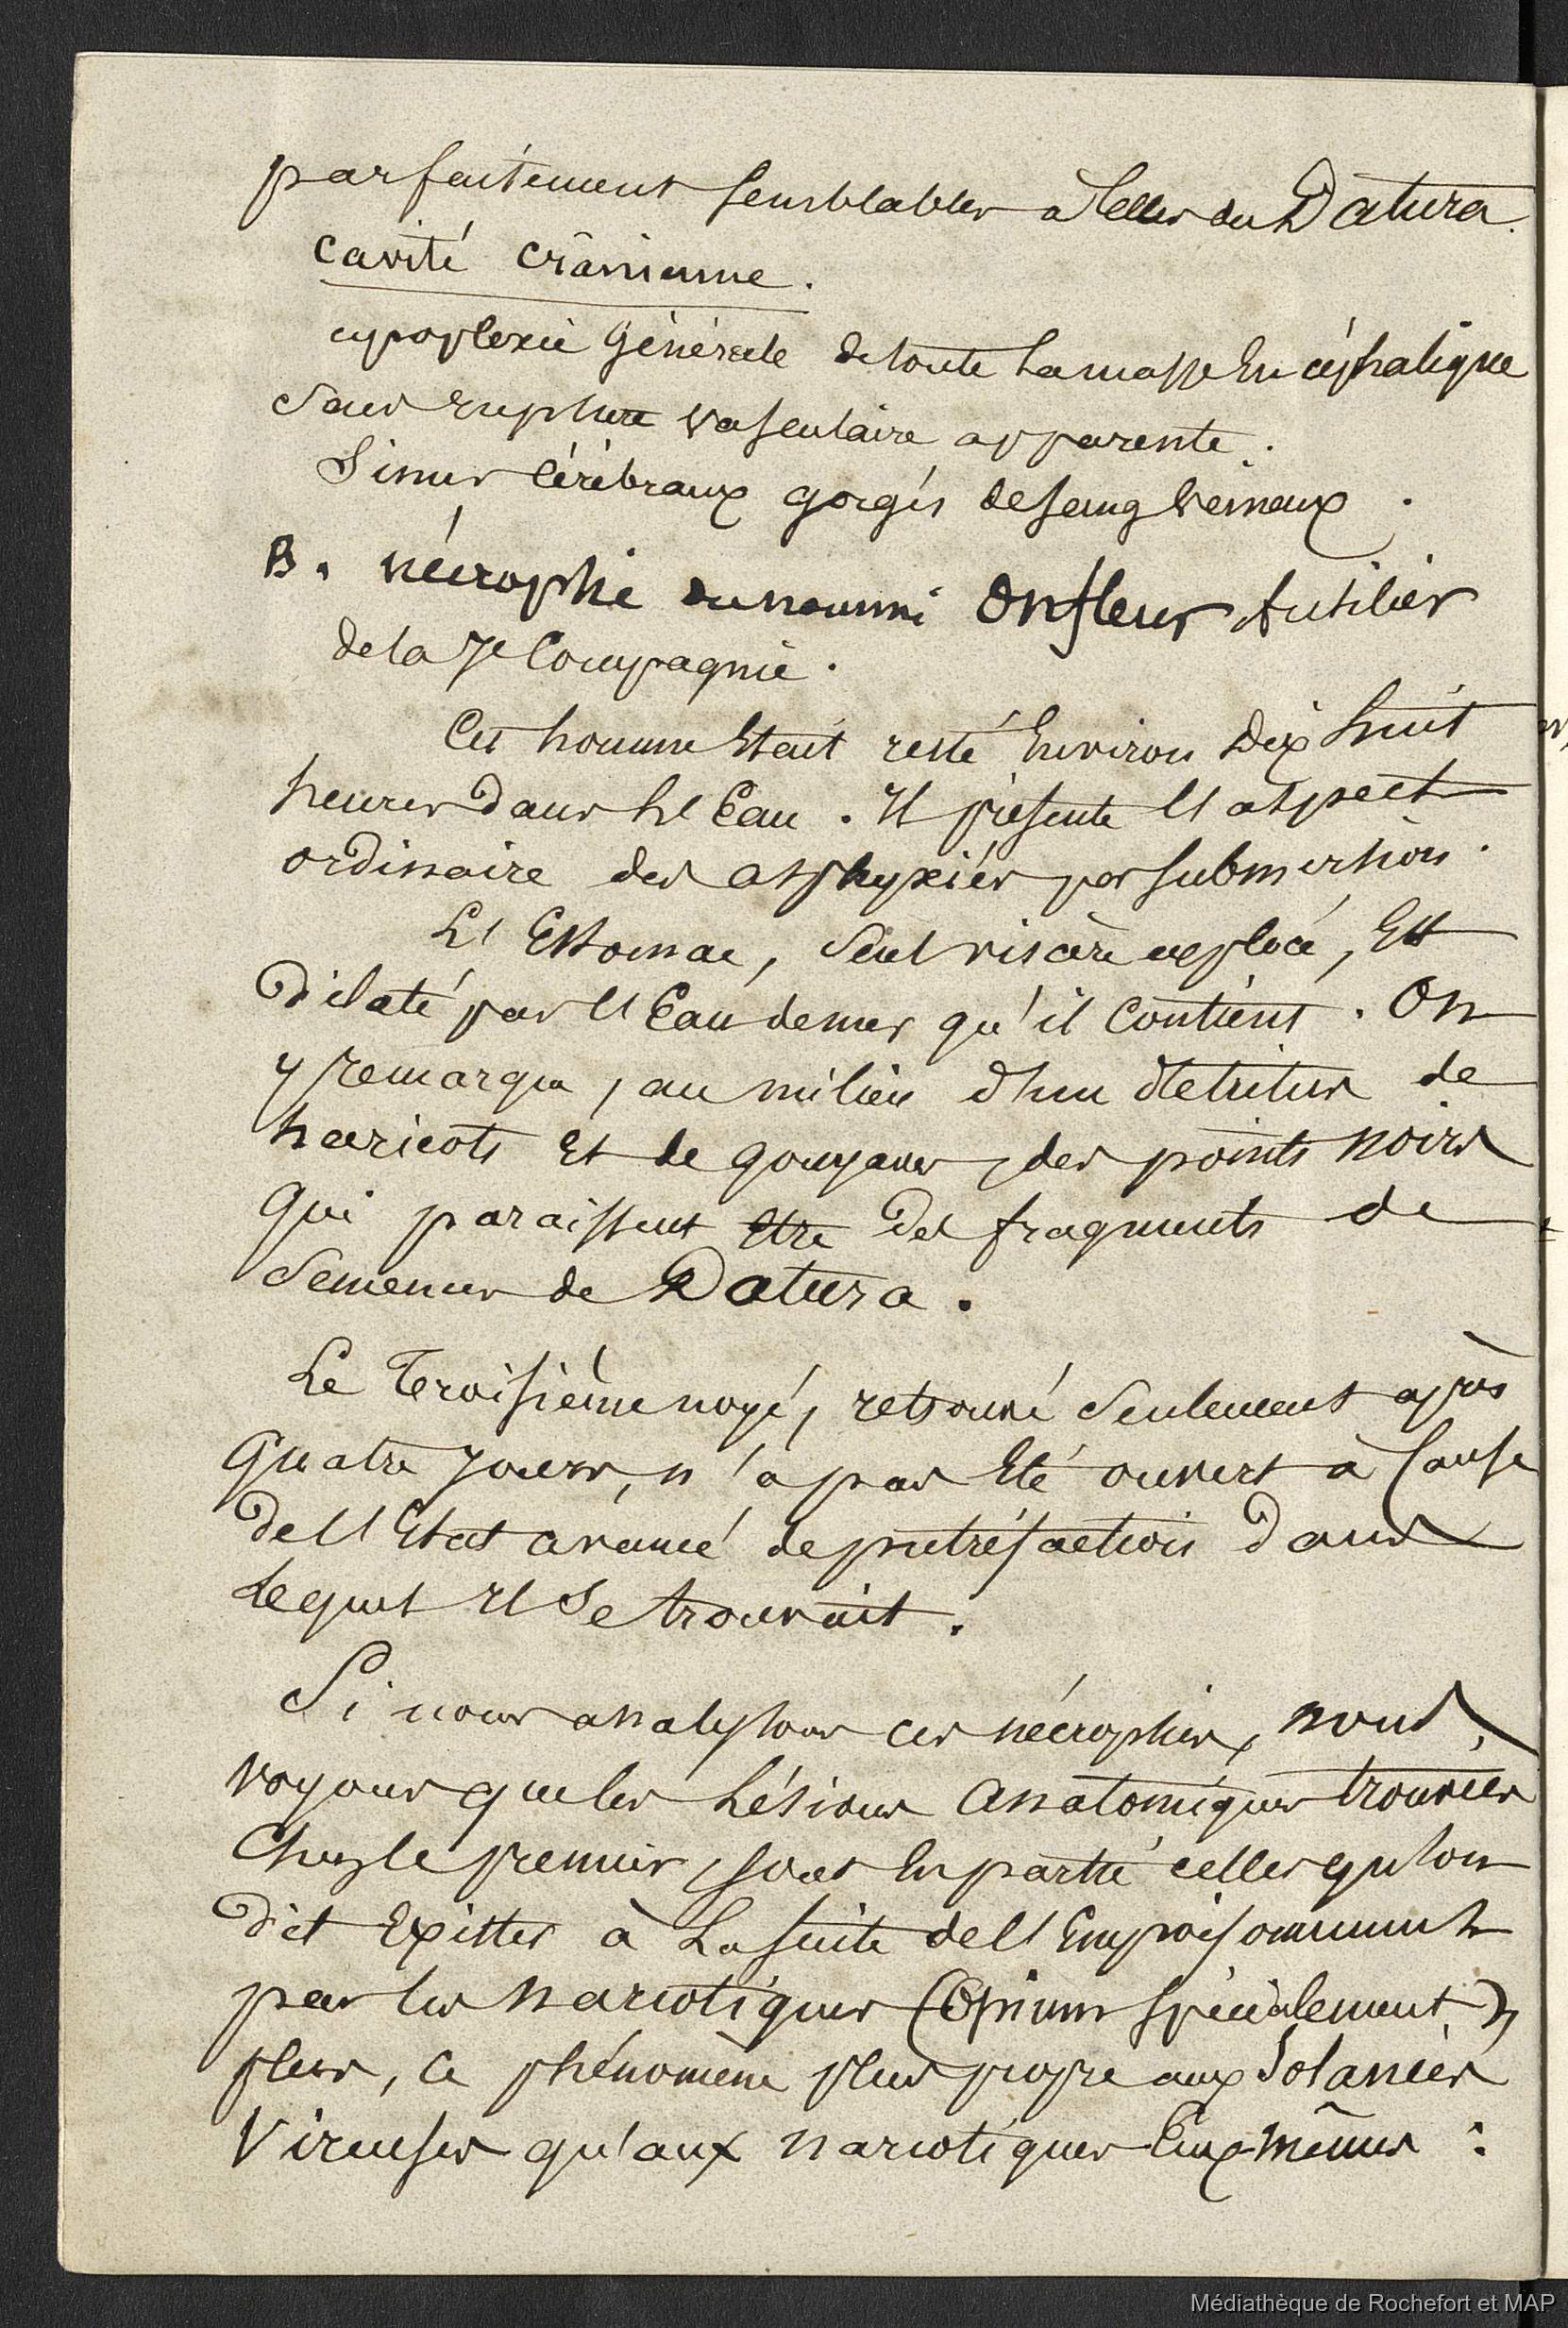 parfaitement semblables à celles du Datura.
cavité crânienne.
apoplexie générale de toute la masse encéphalique
sans rupture vasculaire apparente.
Sinus cérébraux gorgés de sang veineux.
B. nécropsie du nommé Onfleur fusilier
de la 7e Compagnie.
Cet homme était resté environ dix huit
heures dans l'Eau. Il présente l'aspect
ordinaire des asphyxiés par submersion.
L'Estomac, seul viscère explore, Est
dilaté par l'Eau de mer qu'il contient. On
y remarque, au milieu d'un détritus de
haricots et de goyaves, des points noirs
qui paraissent être des fragments de
Semences de Datura.
Le Troisième noyé, retrouvé seulement après
quatre jours, n'a pas été ouvert à cause
de l'Etat avancé de putréfaction dans
lequel il se trouvait.
Si nous analysons ces nécropsies, nous
voyons que les Lésions anatomiques trouvées
Chez le premier, sont en partie celles qu'on
dit Exister à la suite de l'Empoisonnement
par les narcotiques (Opium spécialement)
plus, ce phénomène plus propre aux Solanées
Vireuses qu'aux narcotiques Eux-mêmes :
Médiathèque de Rochefort et MAP